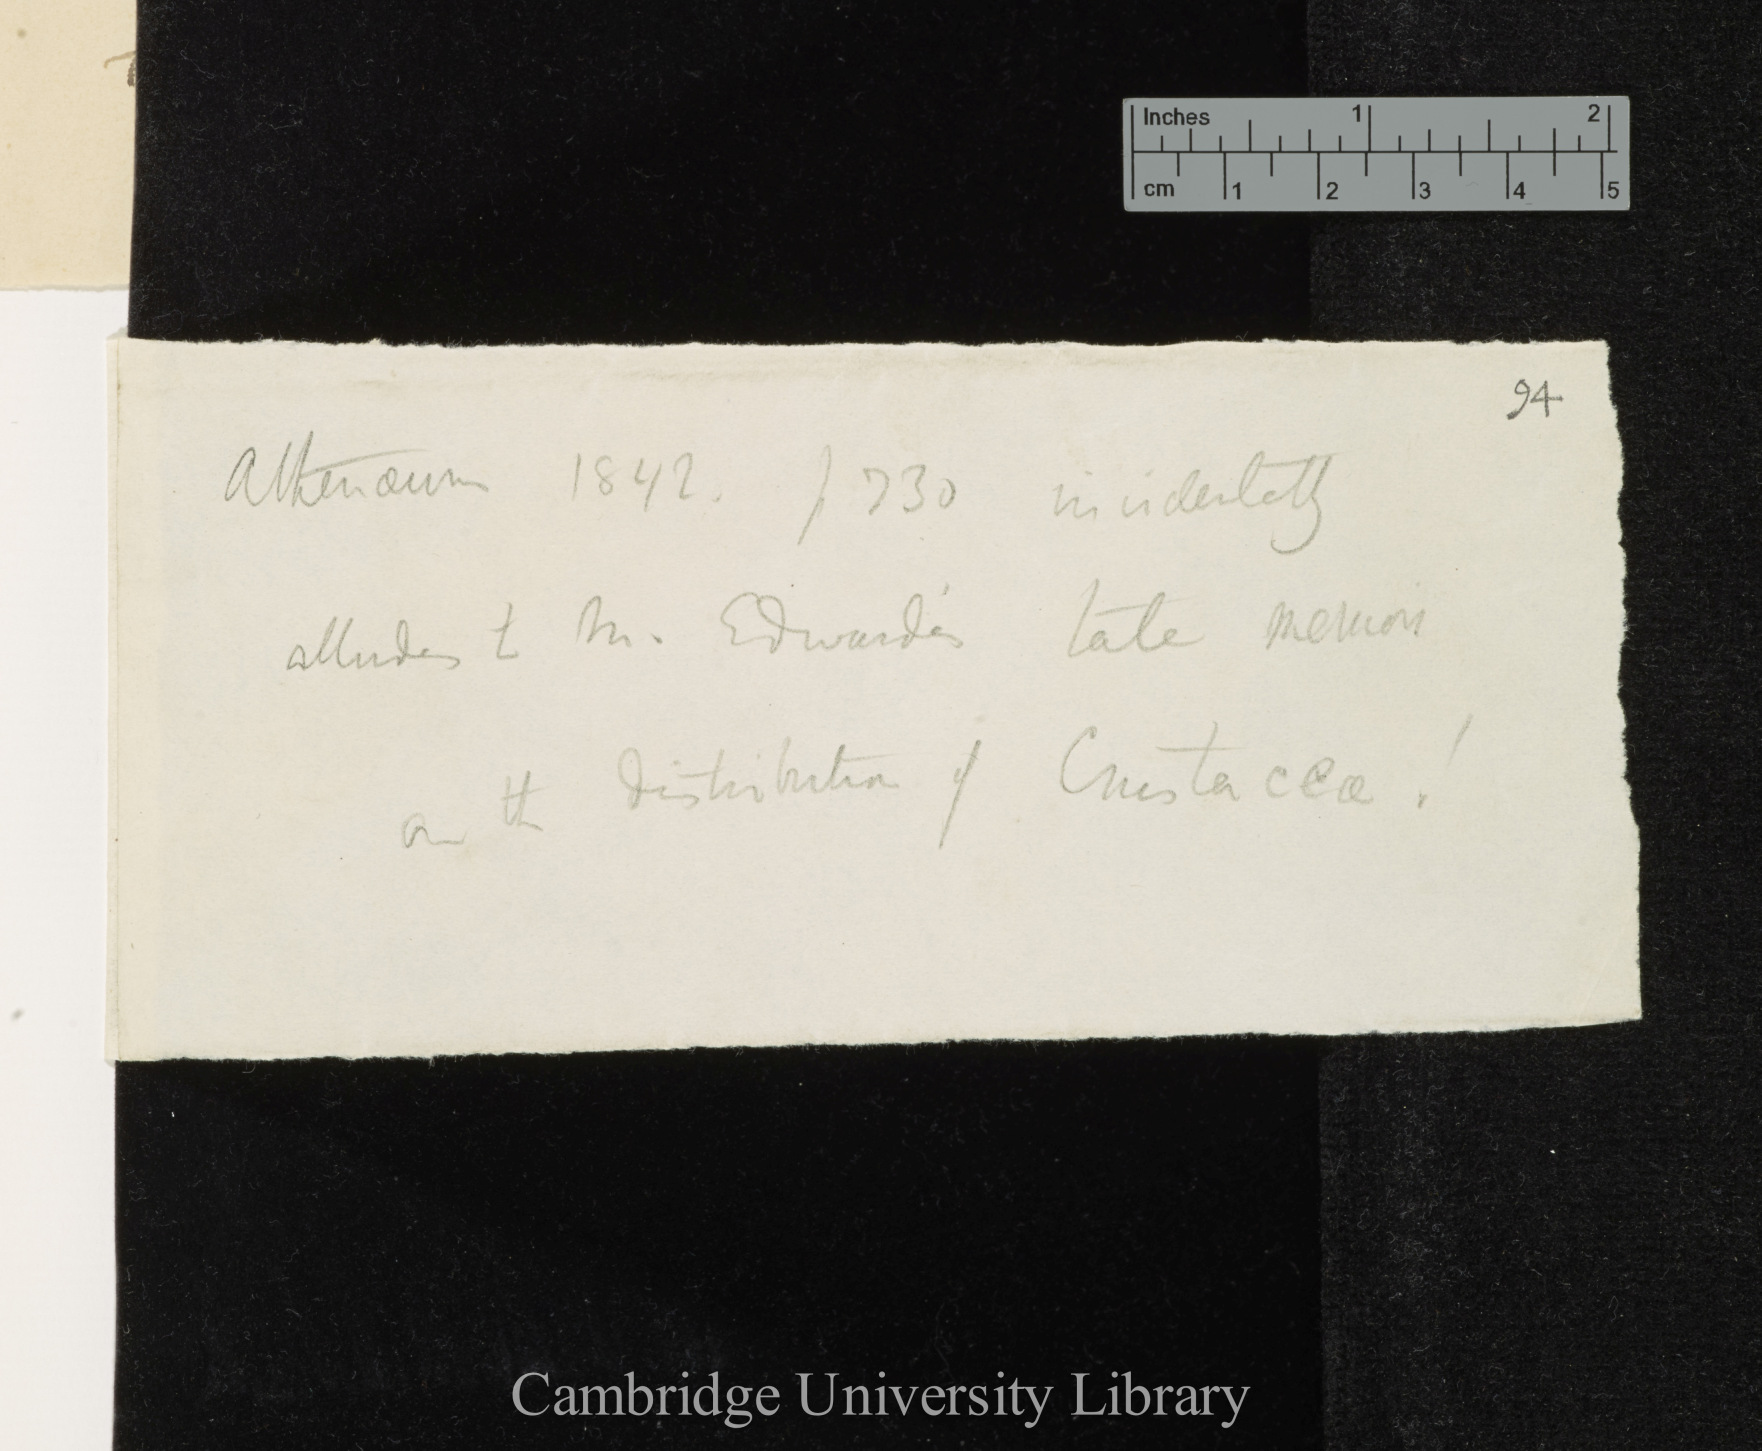 Inches 1 2
cm 1 2 3 4 5
94
Athenæum 1842. p 730 incidentally
alludes to M. Edwards's late memoir
on the distribution of Crustaceæ!
Cambridge University Library